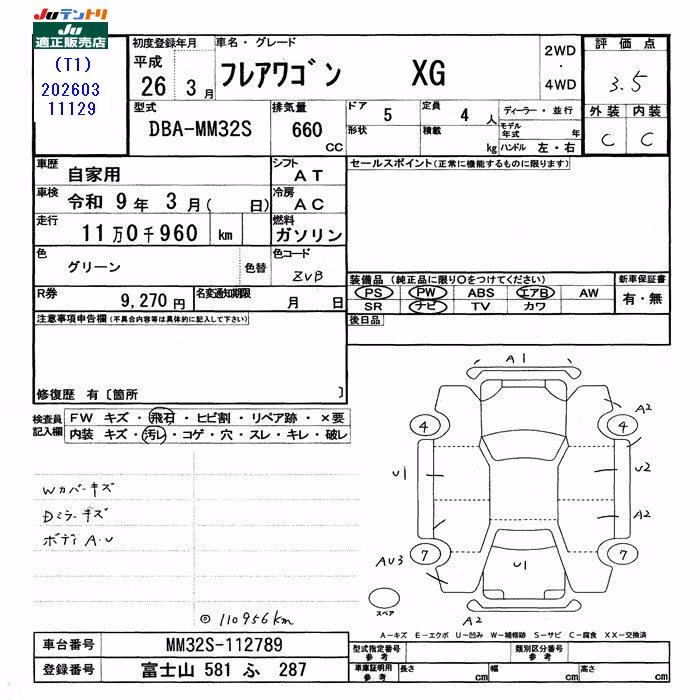 Juテントリ
Ju
適正販売店
(T1)
202603
11129
初度登録年月
平成
26 3月
車名・グレード
フレアワゴン XG
2WD
・
4WD
評価点
3.5
外装 内装
C C
型式
DBA-MM32S
排気量
660
CC
ドア
5
形状
定員
4 人
積載
kg
ディーラー・並行
モデル年式 年
ハンドル 左・右
車歴
自家用
シフト
AT
車検
令和 9年 3月( 日)
冷房
AC
走行
11万0千960 km
燃料
ガソリン
色
グリーン
色替
色コード
ZVB
R券
9,270円
名変通知期限
月 日
セールスポイント(正常に機能するものに限ります)
装備品(純正品に限り○をつけてください)
PS PW ABS エアB AW
SR ナビ TV カワ
新車保証書
有・無
後日品
注意事項申告欄(不具合内容等は具体的に記入して下さい)
修復歴 有〔箇所 〕
検査員記入欄
FW キズ・飛石・ヒビ割・リペア跡・×要
内装 キズ・汚レ・コゲ・穴・スレ・キレ・破レ
Wカバーキズ
Dミラーキズ
ボディA.U
◎110956km
A1
A2
4
4
U1
U2
A2
AU3
7
7
U1
A2
スペア
A−キズ E−エクボ U−凹み W−補修跡 S−サビ C−腐食 XX−交換済
車台番号
MM32S-112789
登録番号
富士山 581 ふ 287
型式指定番号
参考
類別区分番号
参考
車庫証明用
参考
長さ cm
幅 cm
高さ cm